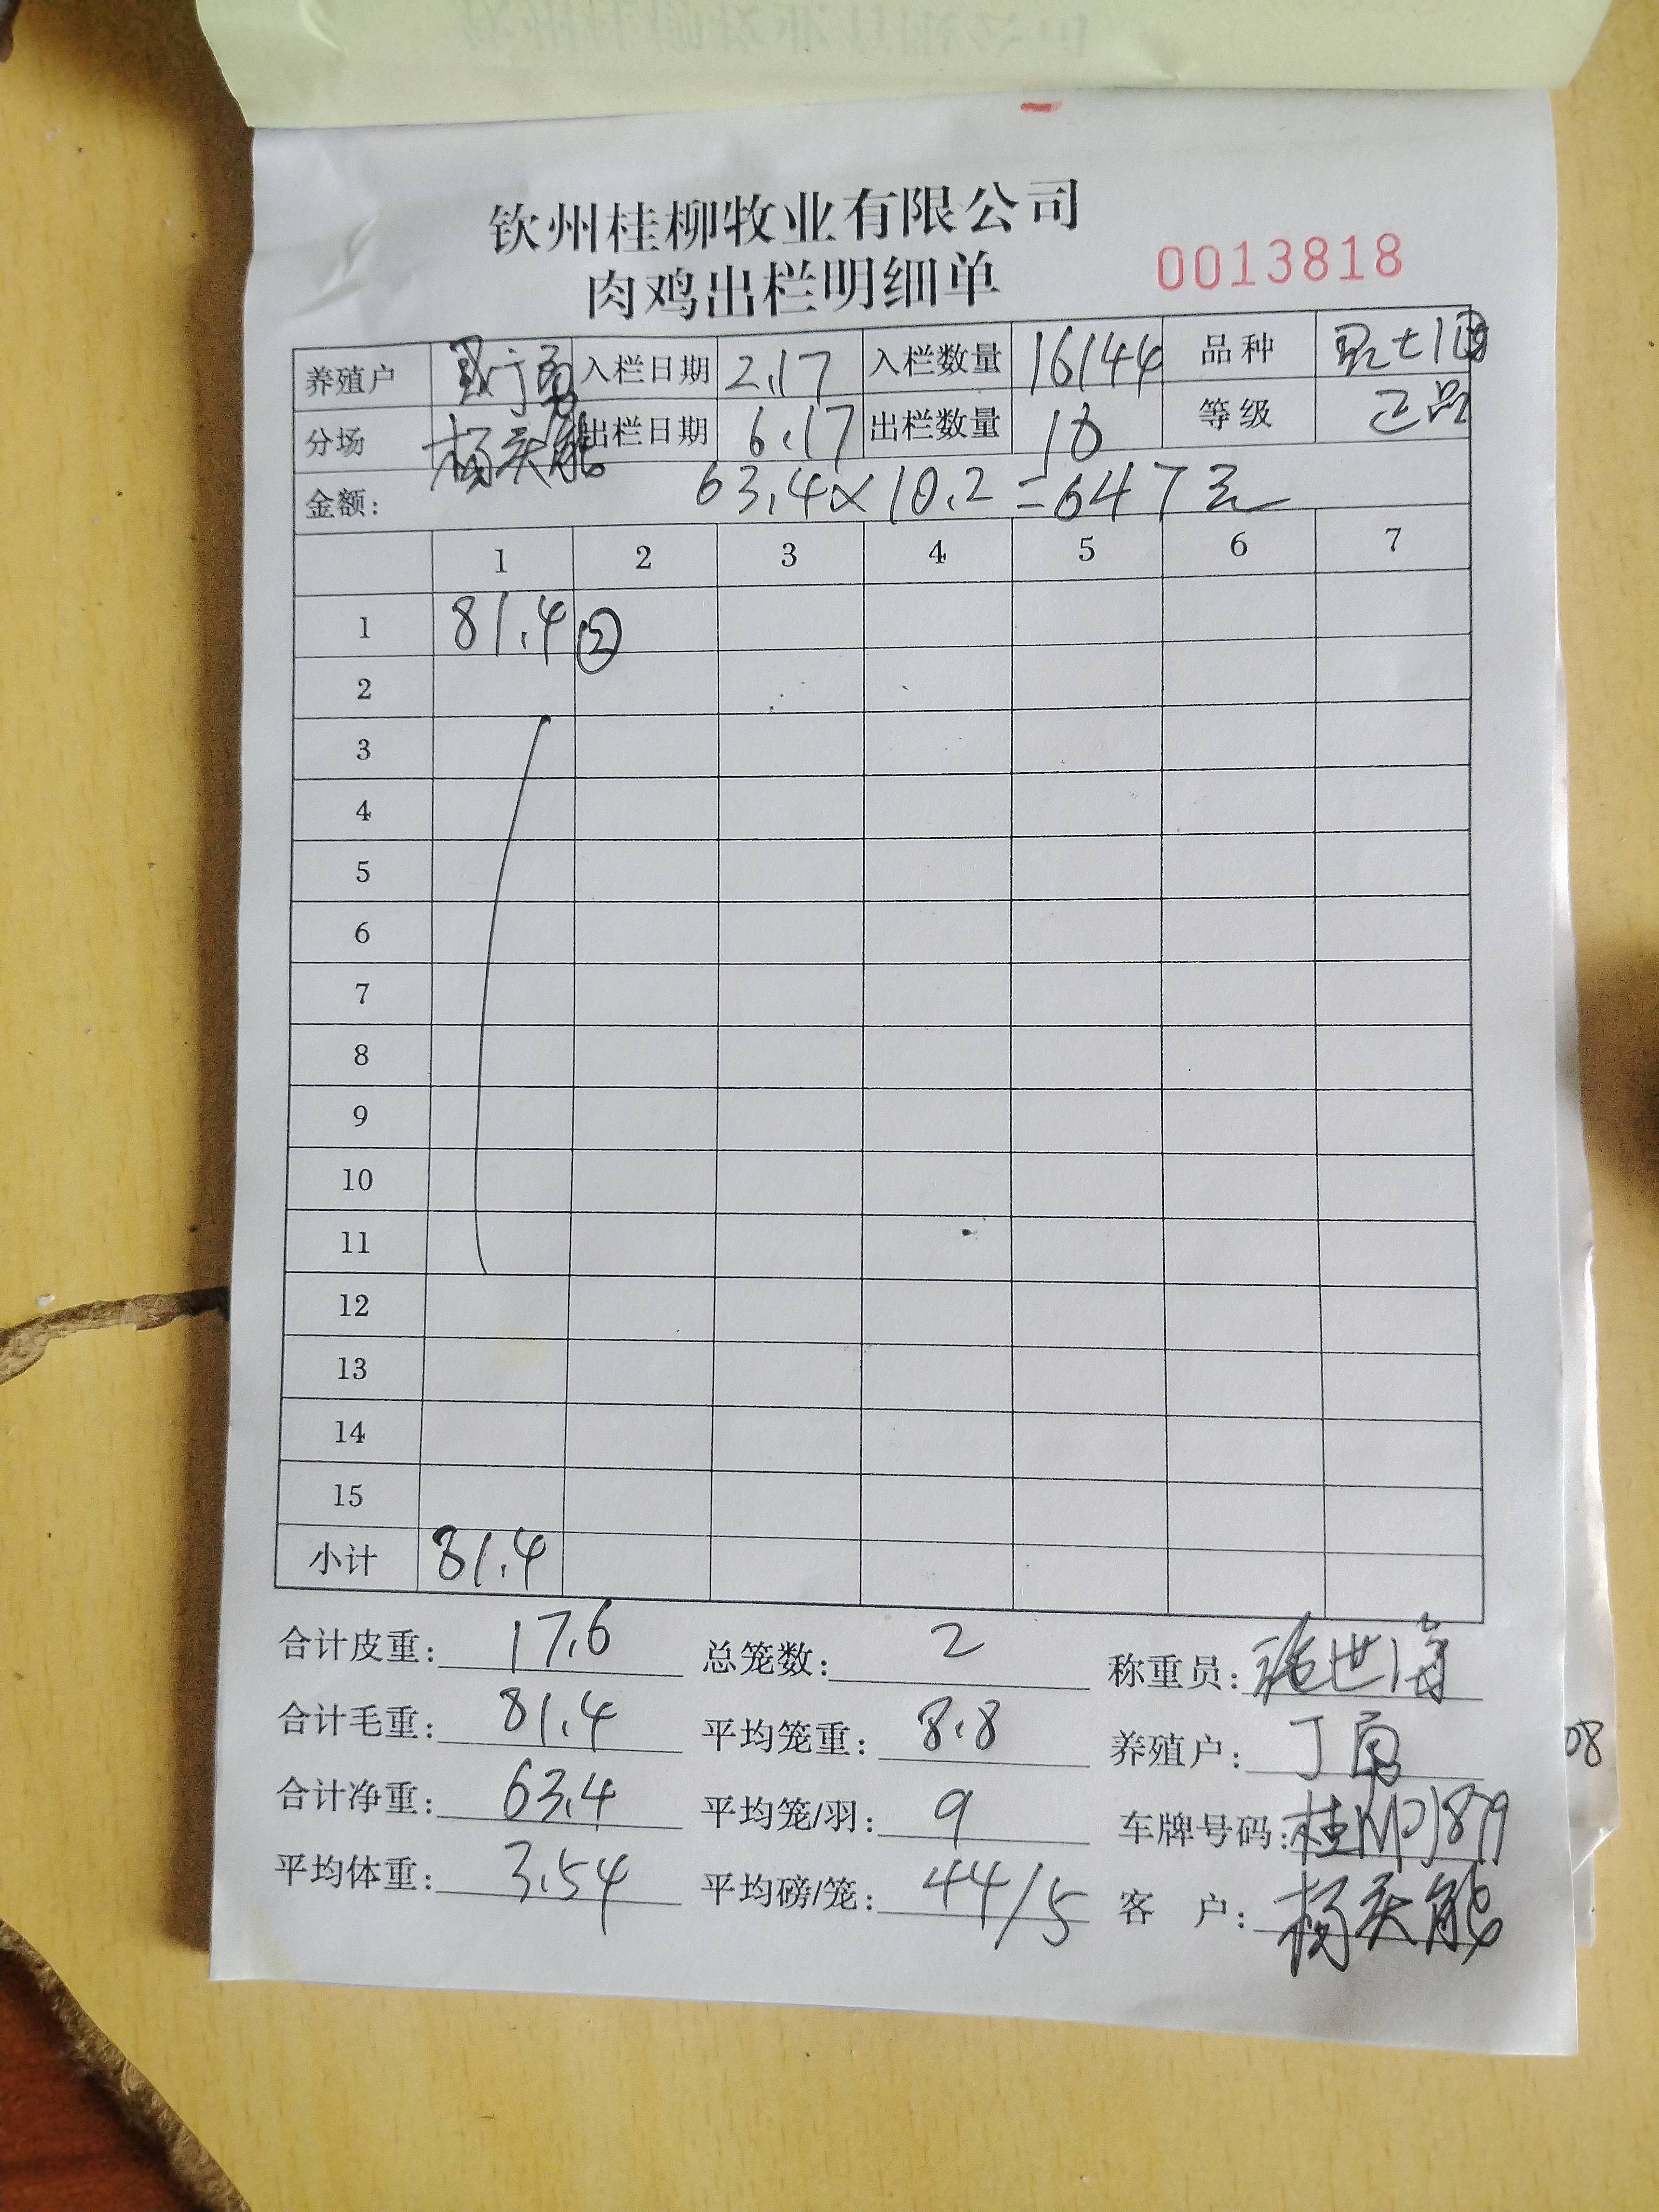 钦州桂柳牧业有限公司
肉鸡出栏明细单 0013818
养殖户 丁勇 入栏日期 2.17 入栏数量 16144 品种
分场 杨 能 出栏日期 6.17 出栏数量 18 等级 正品
金额: 63.4×10.2=647元
1 2 3 4 5 6 7
1 81.4 ②
2
3
4
5
6
7
8
9
10
11
12
13
14
15
小计 81.4
合计皮重: 17.6 总笼数: 2 称重员: 张世海
合计毛重: 81.4 平均笼重: 8.8 养殖户: 丁勇
08
合计净重: 63.4 平均笼/羽: 9 车牌号码: 桂
平均体重: 3.54 平均磅/笼: 44/5 客 户: 杨 能